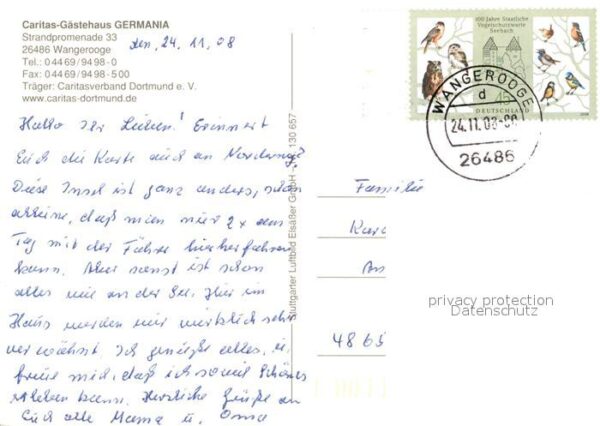 Caritas-Gästehaus GERMANIA
Strandpromenade 33
26486 Wangerooge
Tel.: 0 44 69 / 94 98 - 0
Fax: 0 44 69 / 94 98 - 5 00
Träger: Caritasverband Dortmund e. V.
www.caritas-dortmund.de
den, 24. 11. 08
Hallo Ihr Lieben! Erinnert
Euch die Karte auch an Norderney?
Diese Insel ist ganz anders, schon
alleine, daß man nur 2x am
Tag mit der Fähre hierherfahren
kann. Aber sonst ist schon
alles wie an der See. Hier im
Haus werden wir wirklich sehr
verwöhnt. Ich genieße alles, u.
freue mich, daß ich soviel Schönes
erleben kann. Herzliche Grüße an
Euch alle Mama u. Oma
Stuttgarter Luftbild Elsäßer GmbH
130 657
100 Jahre Staatliche
Vogelschutzwarte
Seebach
45
DEUTSCHLAND
WANGEROOGE
d
24.11.08
26486
Familie
4865
privacy protection
Datenschutz